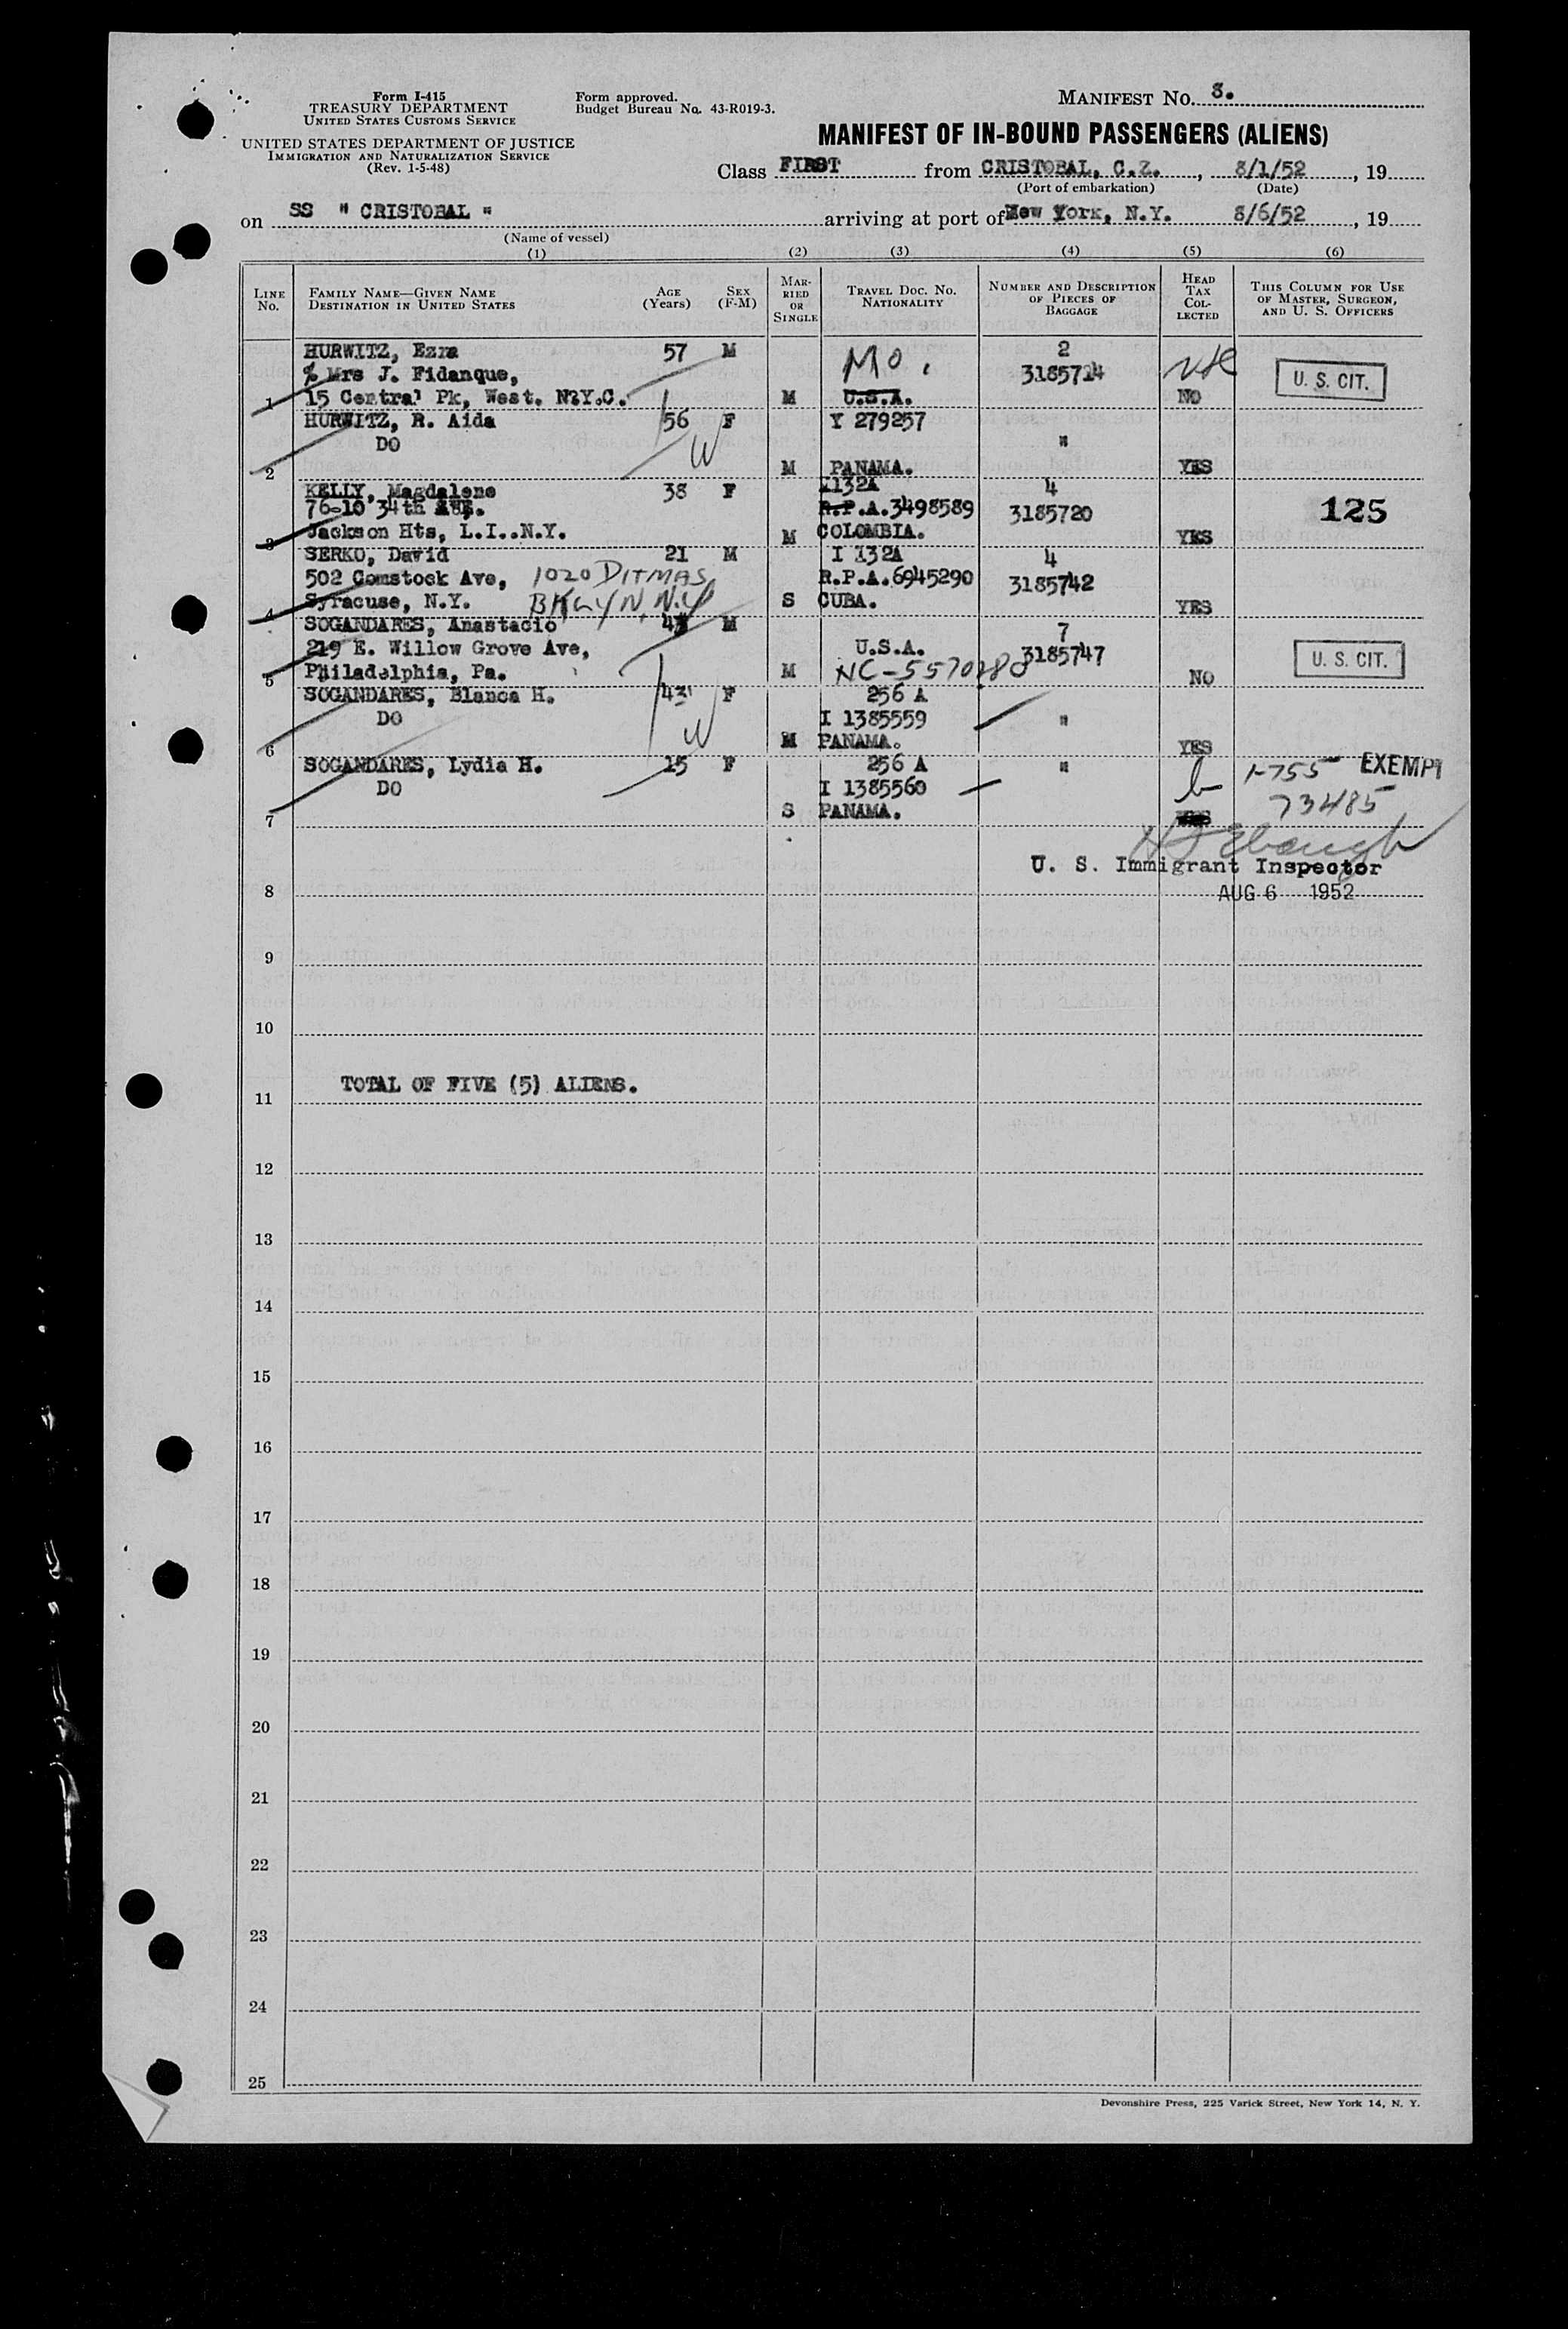 Form I-415
TREASURY DEPARTMENT
UNITED STATES CUSTOMS SERVICE
UNITED STATES DEPARTMENT OF JUSTICE
IMMIGRATION AND NATURALIZATION SERVICE
(Rev. 1-5-48)
Form approved.
Budget Bureau No. 43-R019-3.
MANIFEST NO. 8.
MANIFEST OF IN-BOUND PASSENGERS (ALIENS)
Class FIRST from CRISTOBAL, C.Z., 8/1/52, 19
(Port of embarkation) (Date)
on SS " CRISTOBAL " arriving at port of New York, N.Y. 8/6/52, 19
(Name of vessel)
(1) (2) (3) (4) (5) (6)
LINE No. FAMILY NAME—GIVEN NAME DESTINATION IN UNITED STATES AGE (Years) SEX (F-M) MARRIED OR SINGLE TRAVEL DOC. NO. NATIONALITY NUMBER AND DESCRIPTION OF PIECES OF BAGGAGE HEAD TAX COLLECTED THIS COLUMN FOR USE OF MASTER, SURGEON, AND U. S. OFFICERS
HURWITZ, Ezra 57 M MO. 2
% Mrs J. Fidanque, 3185714 U. S. CIT.
1 15 Central Pk, West. N.Y.C. M U.S.A. NO
HURWITZ, R. Aida 56 F Y 279257
DO W "
2 M PANAMA. YES
KELLY, Magdalene 38 F I132A 4
76-10 34th AVE. R.P.A.3498589 3185720 125
3 Jackson Hts, L.I..N.Y. M COLOMBIA. YES
SERKO, David 21 M I 132A 4
502 Comstock Ave, 1020 DITMAS R.P.A.6945290 3185742
4 Syracuse, N.Y. BKLYN, N.Y S CUBA. YES
SOGANDARES, Anastacio M 7
219 E. Willow Grove Ave, U.S.A. 3185747 U. S. CIT.
5 Philadelphia, Pa. M NO
SOGANDARES, Blanca H. 43 F 256 A
DO W I 1385559 "
6 M PANAMA. YES
SOGANDARES, Lydia H. 15 F 256 A " 1-755 EXEMPT
DO I 1385560 73485
7 S PANAMA.
U. S. Immigrant Inspector
8 AUG 6 1952
9
10
TOTAL OF FIVE (5) ALIENS.
11
12
13
14
15
16
17
18
19
20
21
22
23
24
25
Devonshire Press, 225 Varick Street, New York 14, N. Y.